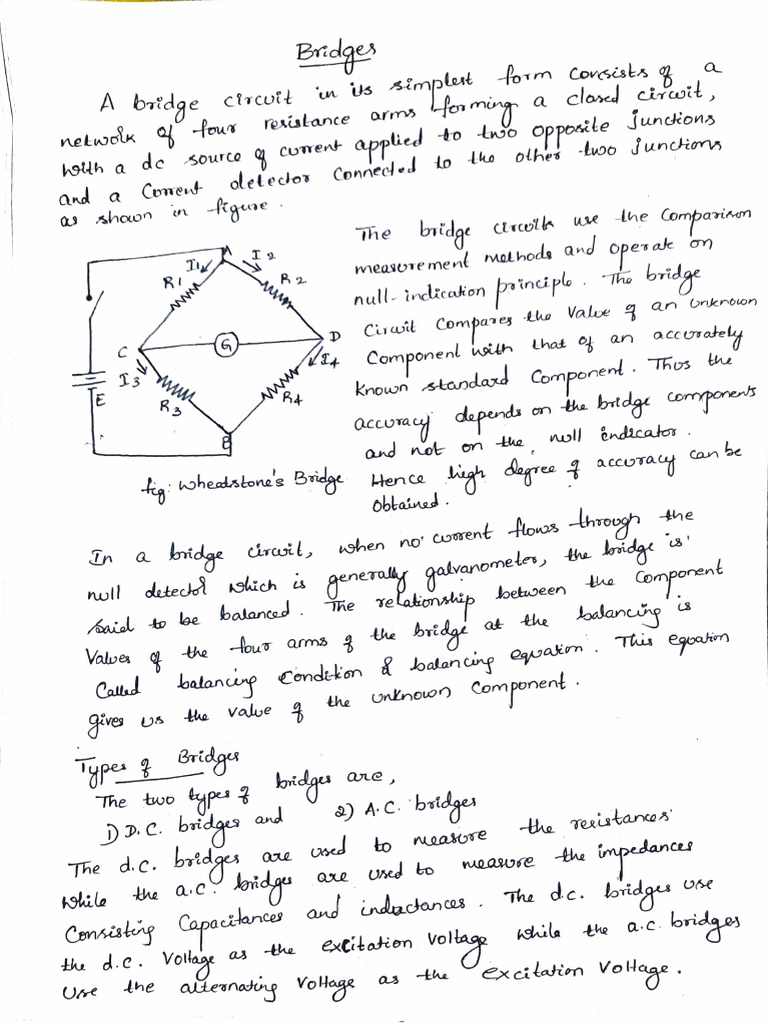 Bridges
A bridge circuit in its simplest form consists of a
network of four resistance arms forming a closed circuit,
with a dc source of current applied to two opposite junctions
and a Current detector connected to the other two junctions
as shown in figure.
A
I1
I2
R1
R2
C
G
D
I3
I4
E
R3
R4
B
fig: Wheatstone's Bridge
The bridge circuits use the Comparison
measurement methods and operate on
null-indication principle. The bridge
Circuit Compares the Value of an unknown
Component with that of an accurately
known standard Component. Thus the
accuracy depends on the bridge components
and not on the null indicator.
Hence high degree of accuracy can be
Obtained.
In a bridge circuit, when no current flows through the
null detector which is generally galvanometer, the bridge is
said to be balanced. The relationship between the component
Values of the four arms of the bridge at the balancing is
Called balancing Condition & balancing equation. This equation
gives us the value of the unknown Component.
Types of Bridges
The two types of bridges are,
1) D.C. bridges and 2) A.C. bridges
The d.c. bridges are used to measure the resistances
while the a.c. bridges are used to measure the impedances
Consisting Capacitances and inductances. The d.c. bridges use
the d.c. Voltage as the excitation voltage while the a.c. bridges
Use the alternating Voltage as the excitation Voltage.